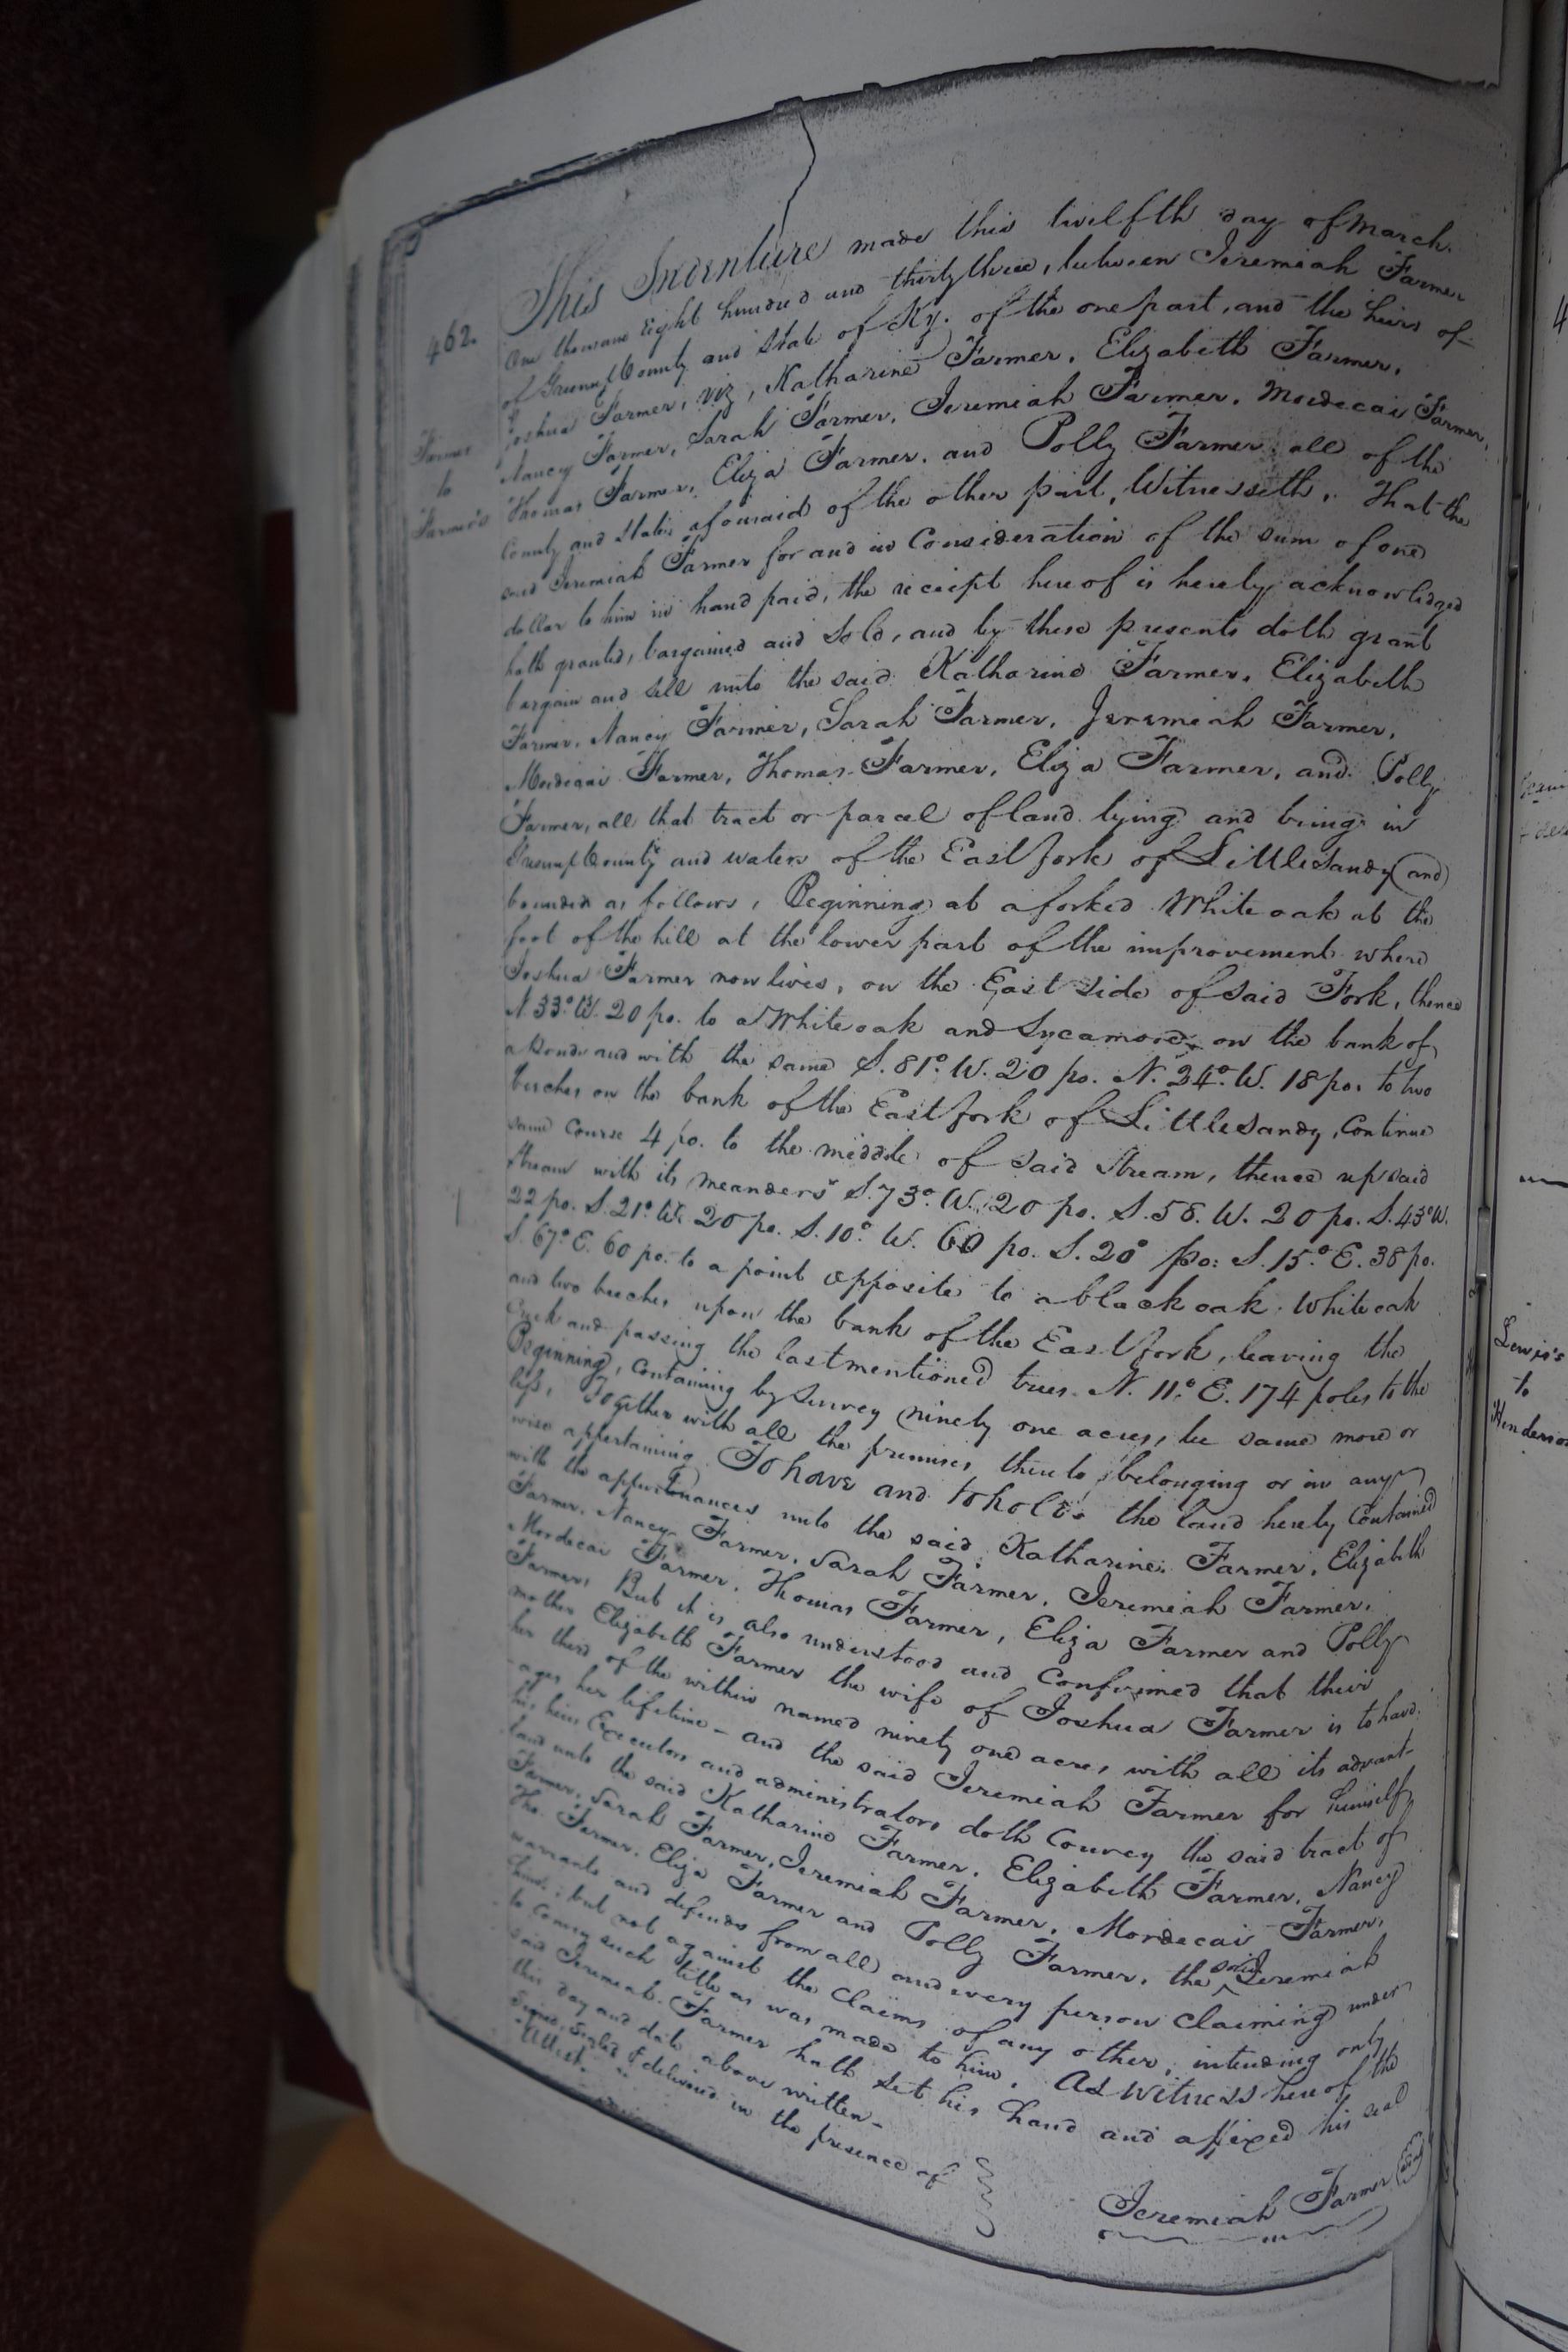 462.
Farmer
to
Farmer's
This Indenture made this twelfth day of March.
One thousand Eight hundred and thirty three, between Jeremiah Farmer
of Greenup County and State of Ky. of the one part, and the heirs of
Joshua Farmer, viz, Katharine Farmer, Elizabeth Farmer,
Nancy Farmer, Sarah Farmer, Jeremiah Farmer, Mordecai Farmer,
Thomas Farmer, Eliza Farmer, and Polly Farmer all of the
County and State aforesaid of the other part, Witnesseth, That the
said Jeremiah Farmer for and in Consideration of the sum of one
dollar to him in hand paid, the receipt hereof is hereby acknowledged
hath granted, bargained and Sold, and by these presents doth grant
bargain and sell unto the said Katharine Farmer, Elizabeth
Farmer, Nancy Farmer, Sarah Farmer, Jeremiah Farmer,
Mordecai Farmer, Thomas Farmer, Eliza Farmer, and Polly
Farmer, all that tract or parcel of land lying and being in
Greenup County and waters of the East fork of Little Sandy (and)
bounded as follows, Beginning at a forked White oak at the
foot of the hill at the lower part of the improvement where
Joshua Farmer now lives, on the East side of said Fork, thence
N. 33° W. 20 po. to a White oak and Sycamore on the bank of
a and with the same S. 81° W. 20 po. N. 24° W. 18 po. to two
beeches on the bank of the East fork of Little Sandy, Continue
same Course 4 po. to the middle of said Stream, thence up said
Stream with its meanders S. 73° W. 20 po. S. 58. W. 20 po. S. 43° W.
22 po. S. 21° W. 20 po. S. 10° W. 60 po. S. 20° po: S. 15° E. 38 po.
S. 67° E. 60 po. to a point opposite to a black oak. White oak
and two beeches upon the bank of the East fork, leaving the
Creek and passing the last mentioned trees N. 11° E. 174 poles to the
Beginning, Containing by Survey ninety one acres, be same more or
less, Together with all the premises thereto belonging or in any
wise appertaining To have and to hold the land hereby Contained
with the appurtenances unto the said Katharine Farmer, Elizabeth
Farmer, Nancy Farmer, Sarah Farmer, Jeremiah Farmer,
Mordecai Farmer, Thomas Farmer, Eliza Farmer and Polly
Farmer, But it is also understood and Confirmed that their
mother Elizabeth Farmer the wife of Joshua Farmer is to have
her third of the within named ninety one acres, with all its advant-
-ages her lifetime - and the said Jeremiah Farmer for himself
his heirs Executors and administrators doth Convey the said tract of
land unto the said Katharine Farmer, Elizabeth Farmer, Nancy
Farmer, Sarah Farmer, Jeremiah Farmer, Mordecai Farmer,
Tho. Farmer, Eliza Farmer and Polly Farmer, the said Jeremiah
warrants and defends from all and every person claiming under
him, but not against the claims of any other, intending only
to convey such title as was made to him. As Witness hereof the
said Jeremiah Farmer hath set his hand and affixed his seal
this day and date above written -
Signed, Sealed & delivered in the presence of
Attest.
Jeremiah Farmer seal
Lewis's
to